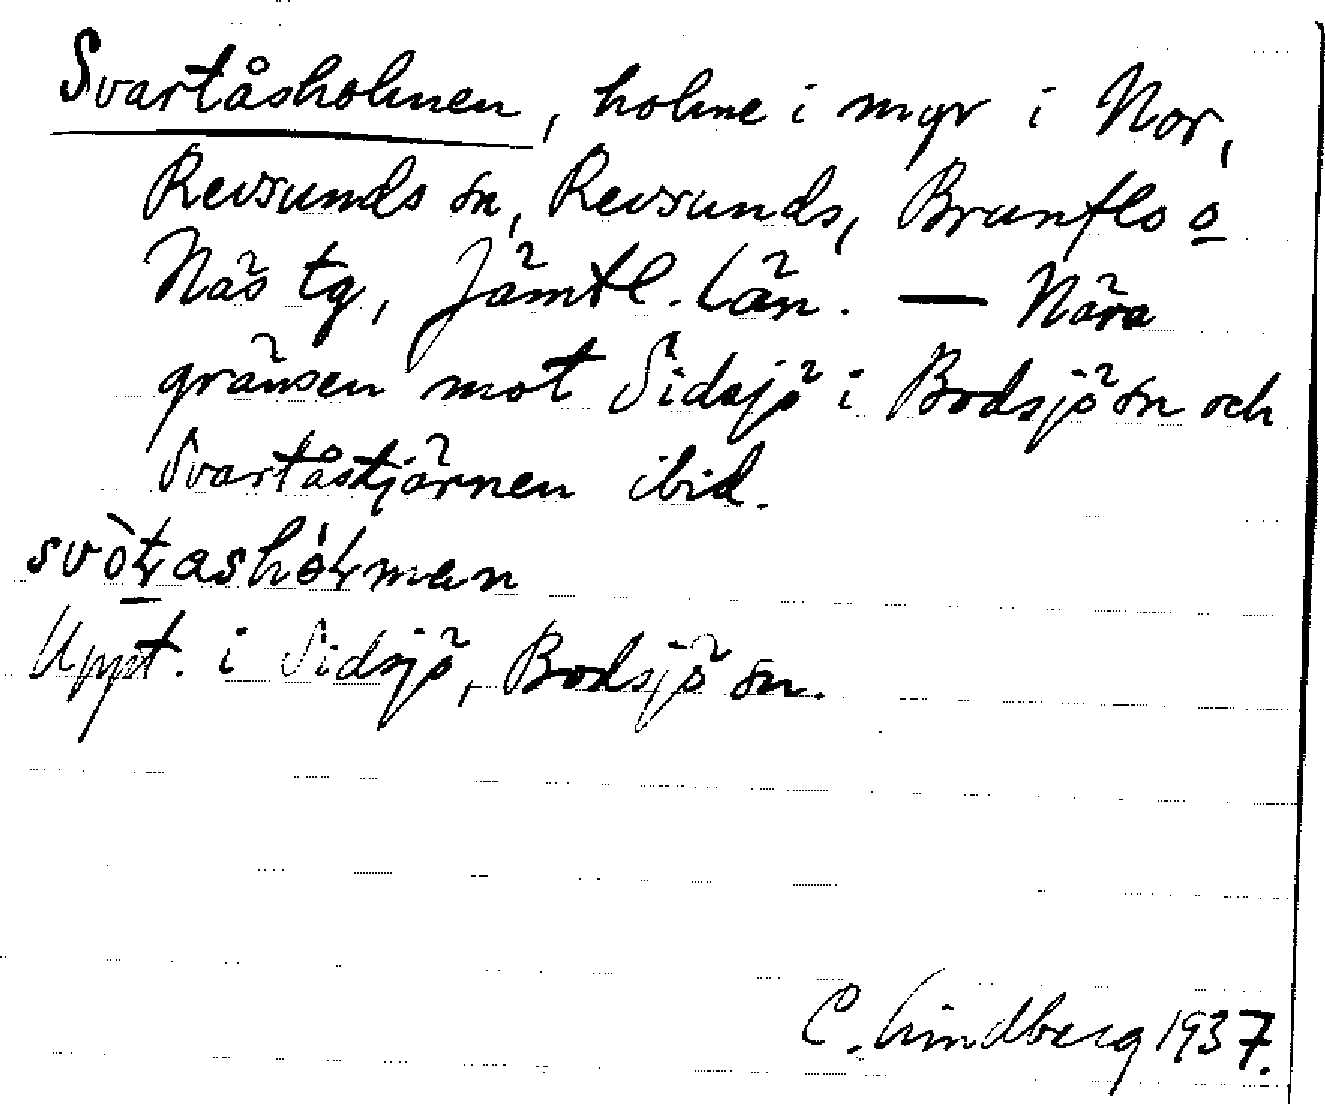 Svartåsholmen, holme i myr i Nor,
Revsunds sn, Revsunds, Brunflo o
Näs tg, Jämtl. län. — Nära
gränsen mot Sidsjö i Bodsjö sn och
Svartåstjärnen ibid.
Uppt. i Sidsjö, Bodsjö sn.
C. Lindberg 1937.